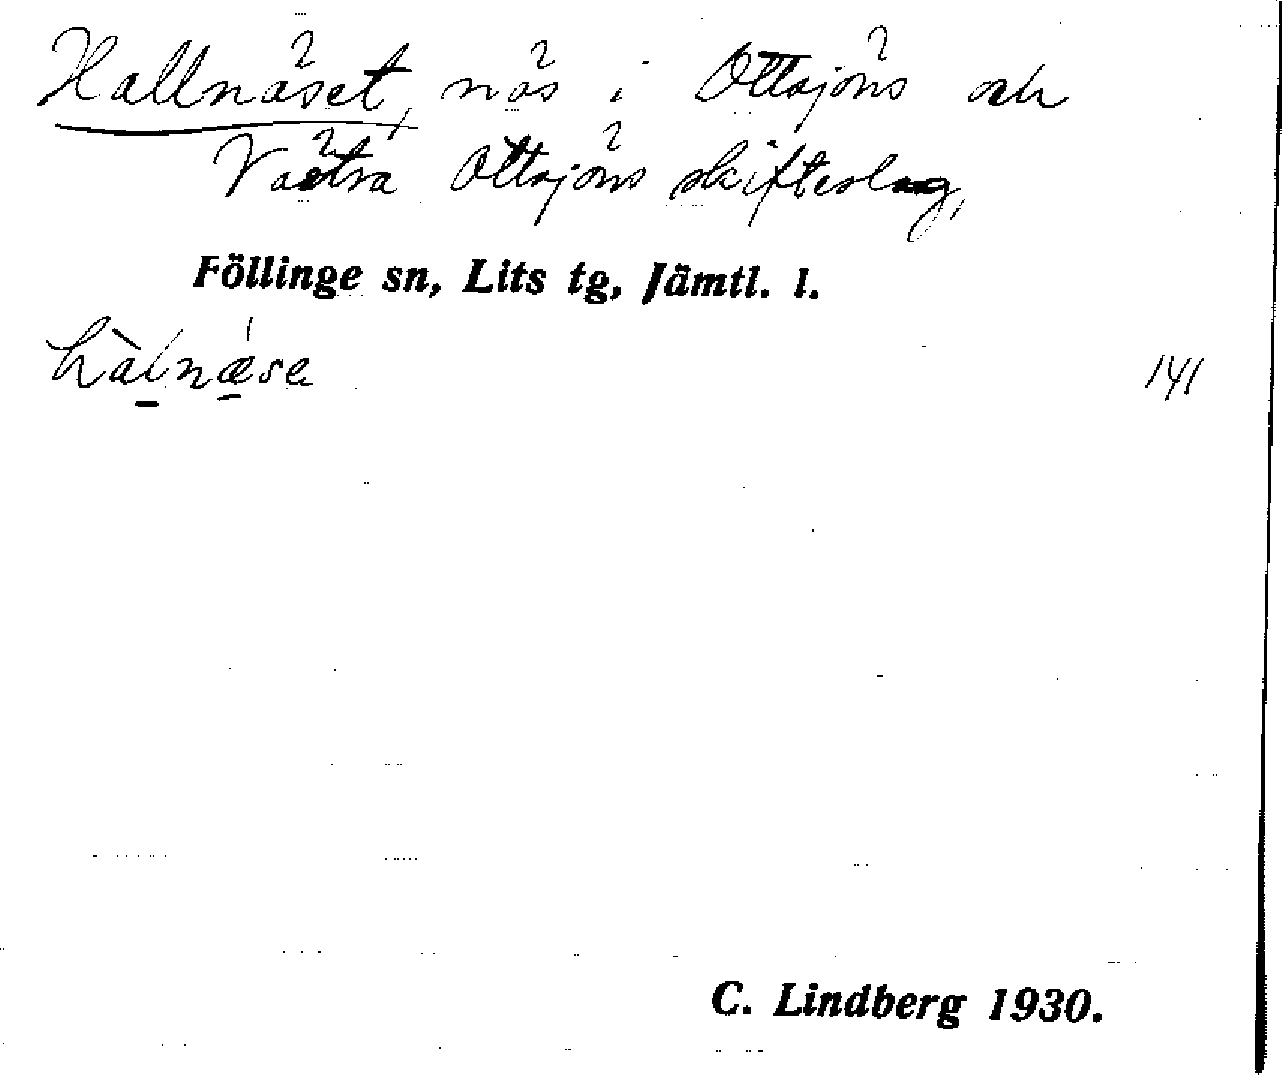 Hallnäset, näs i Ottsjöns och
Västra Ottsjöns skifteslag,
Föllinge sn, Lits tg, Jämtl. l.
hàlnǽsa 141
C. Lindberg 1930.